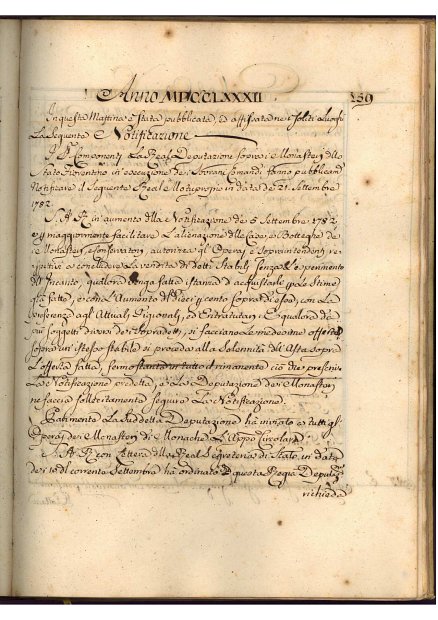 Anno MDCCLXXXII 159
In questa Mattina è stata pubblicata, ed affissata ne i soliti Luoghi
La Seguente Notificazione
I SS.i Componenti La Real Deputazione sopra i Monasterj dello
Stato Fiorentino in esecuzione dei Sovrani Comandi fanno pubblicam.
Notificare il Seguente Real Motuproprio in data de 21. Settembre
1782.
S. A. R. in aumento della Notificazione de 6 Settembre 1782
e p maggiormente facilitare L'alienazione delle Case, e Botteghe de
i Monasterj, e Conservatorj, autorizza gl'Operaj, e Soprintendenti re-
spettivi a concludere La vendita di detti Stabili Senza L'esperimento
dell'Incanto, qualora venga fatta istanza d'acquistarle p Le Stime
già fatte, e con L'Aumento di dieci p cento sopra di esse, con La
Conferenza agl'Attuali Pigionali, ed Entratutari: E qualora da
più Soggetti diversi dei Sopradetti, si facciano Le medesime offerte
sopra un istesso stabile si proceda alla Solennità dell'Asta sopra
L'offerta fatta, ferma stante in tutto il rimanente ciò che prescrive
La Notificazione predetta, e La Deputazione dei Monasterj
ne faccia sollecitamente seguire La Notificazione.
Parimente La Suddetta Deputazione ha inviato a tutti gl'
Operaj dei Monasterj di Monache L'Appo Circolare
S. A. R. con Lettera della Real Segreteria di Stato in data
dei 10 del corrente Settembre ha ordinato a questa Regia Deputaz.
richieda